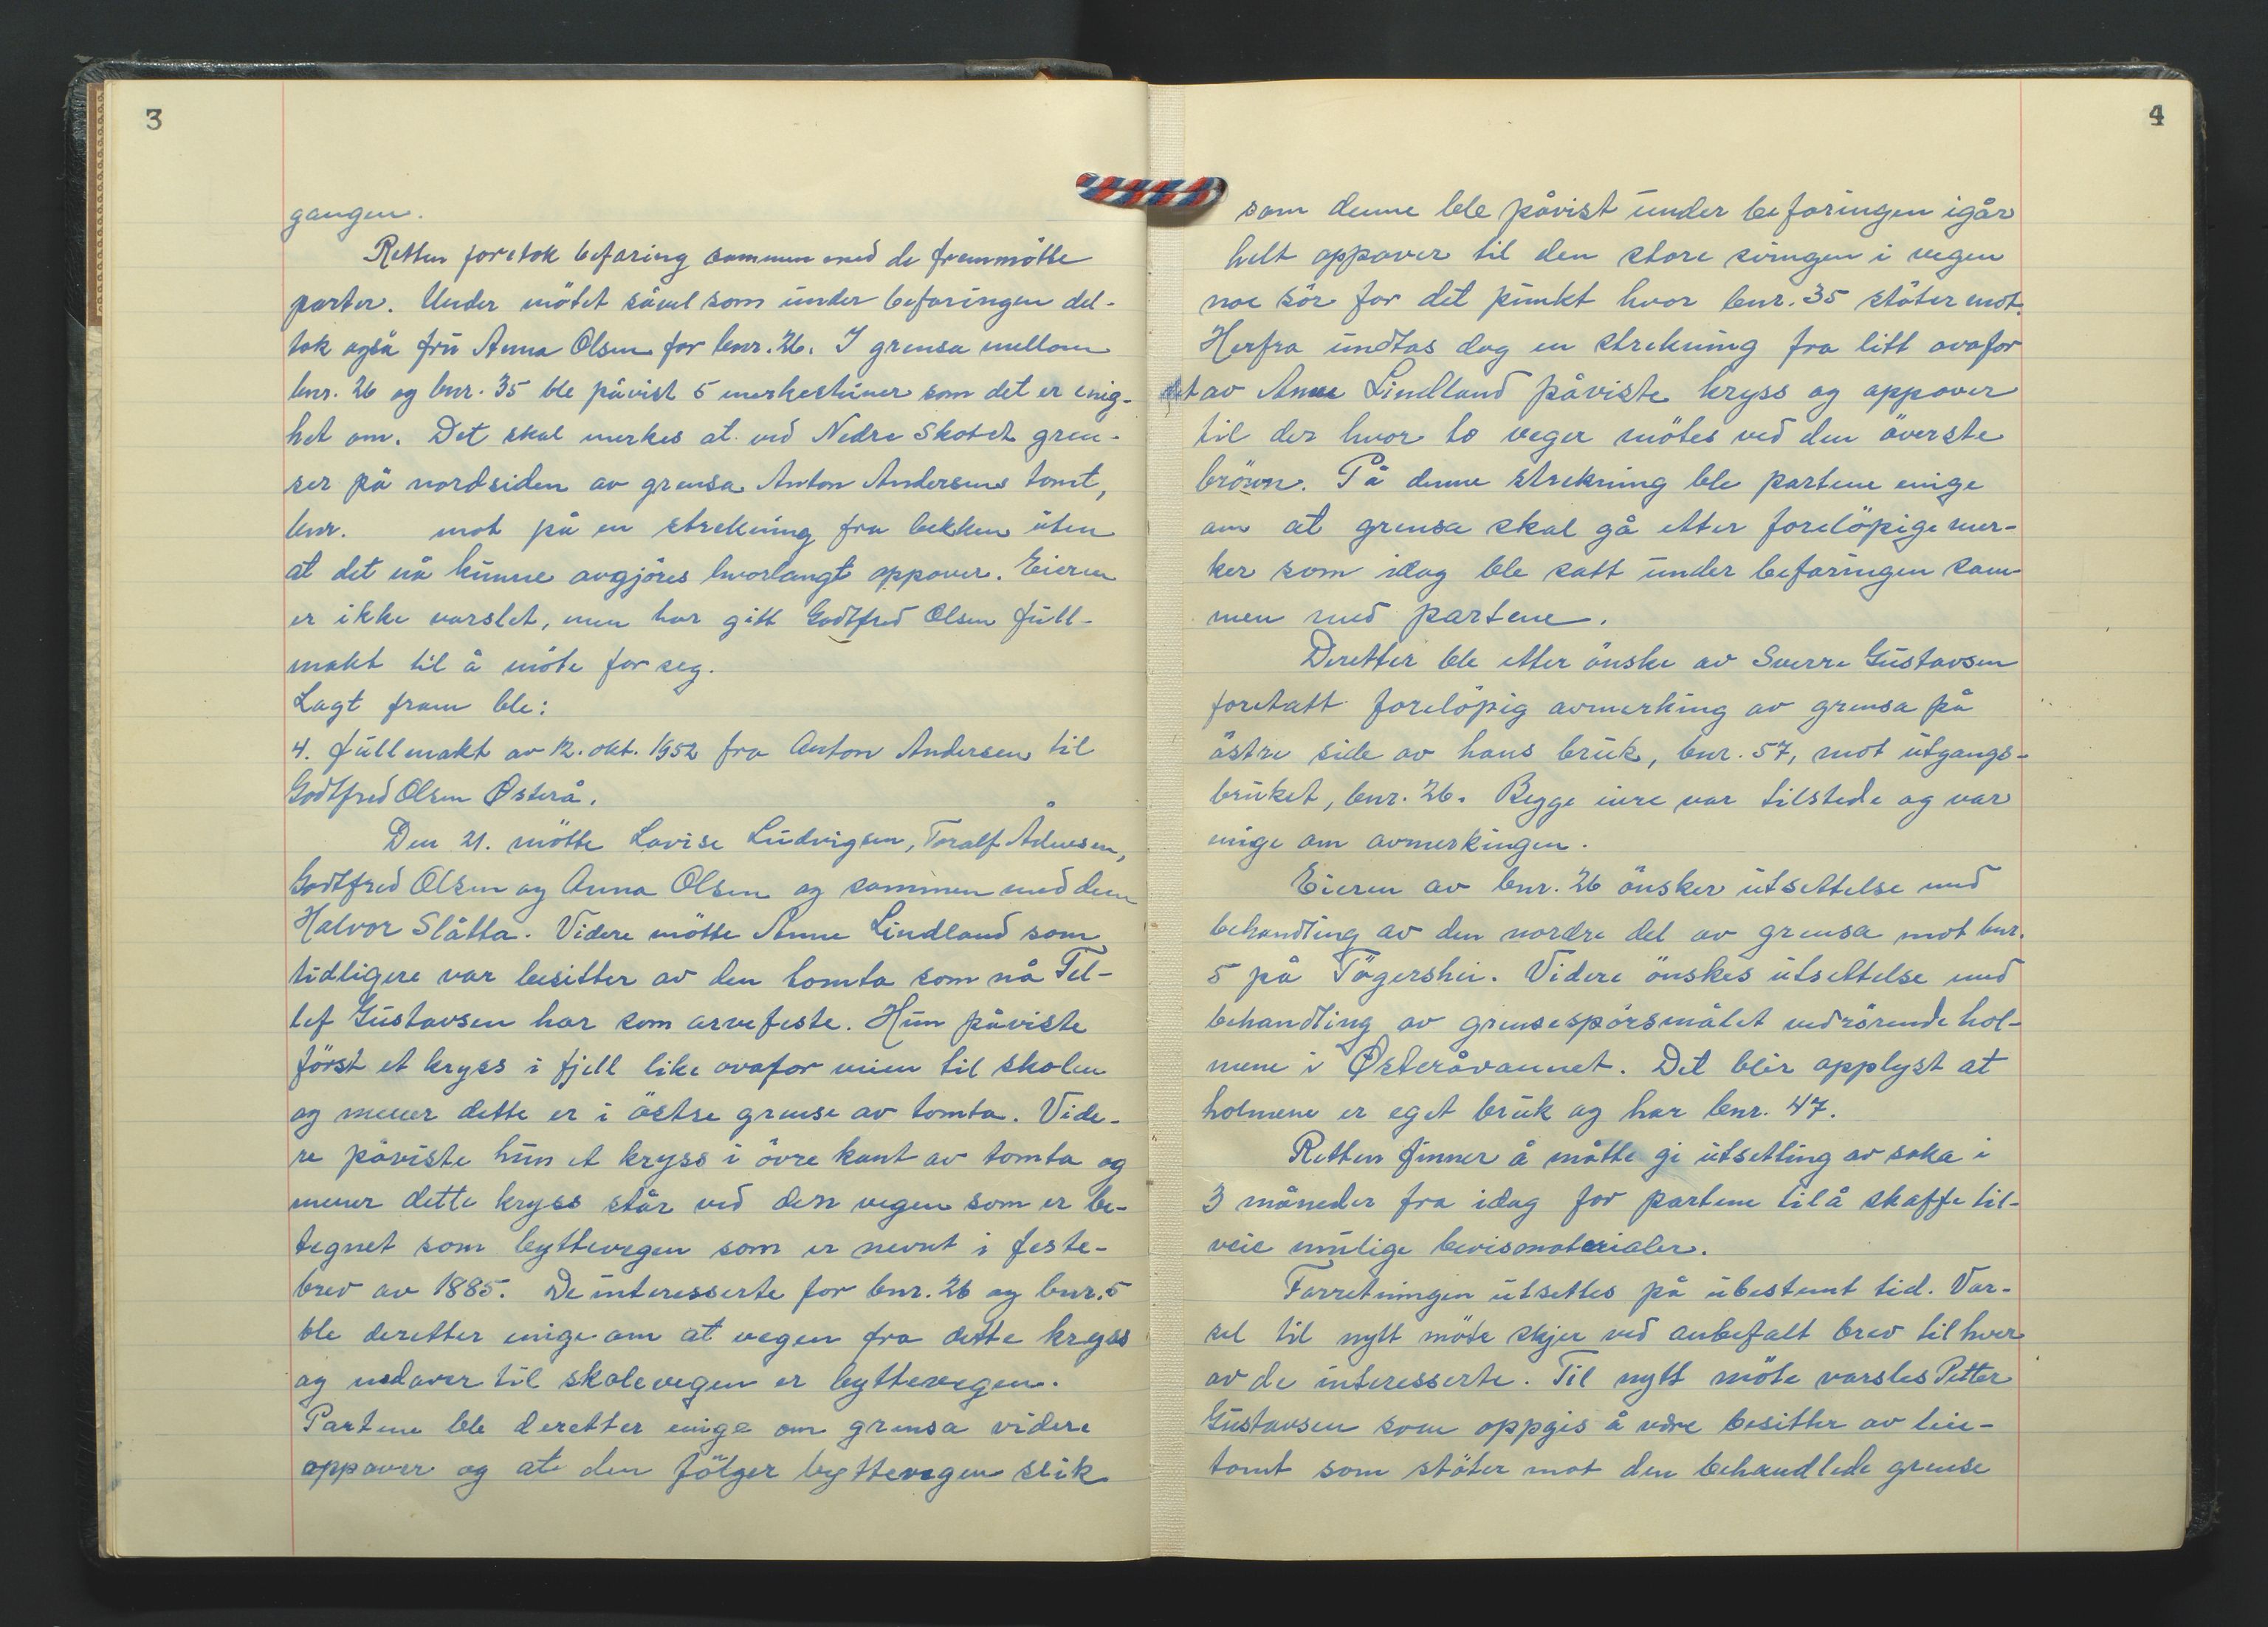 3
gangen.
Retten foretok befaring sammen med de frammötte
parter. Under mötet såvel som under befaringen del-
tok også fru Anna Olsen for bnr. 26. I grensa mellom
bnr. 26 og bnr. 35 ble påvist 5 merkesteiner som det er enig-
het om. Det skal merkes at ved Nedre Skotet gren-
ser på nordsiden av grensa Anton Andersens tomt,
bnr. mot på en strekning fra bekken uten
at det nå kunne avgjöres hvorlangt oppover. Eieren
er ikke varslet, men har gitt Godtfred Olsen full-
makt til å möte for seg.
Lagt fram ble:
4. fullmakt av 12. okt. 1952 fra Anton Andersen til
Godtfred Olsen Østerå.
Den 21. mötte Lovise Ludvigsen, Toralf Ådnesen,
Godtfred Olsen og Anna Olsen og sammen med dem
Halvor Slåtta. Videre mötte Anne Lindland som
tidligere var besitter av den tomta som nå Tel-
lef Gustavsen har som arvefeste. Hun påviste
först et kryss i fjell like ovafor veien til skolen
og mener dette er i östre grense av tomta. Vide-
re påviste hun et kryss i övre kant av tomta og
mener dette kryss står ved den vegen som er be-
tegnet som byttevegen som er nevnt i feste-
brev av 1885. De interesserte for bnr. 26 og bnr. 5
ble deretter enige om at vegen fra dette kryss
og nedover til skolevegen er byttevegen.
Partene ble deretter enige om grensa videre
oppover og at den fölger byttevegen slik
4
som denne ble påvist under befaringen igår
helt oppover til den store svingen i vegen
noe sör for det punkt hvor bnr. 35 stöter mot.
Herfra undtas dog en strekning fra litt ovafor
av Anne Lindland påviste kryss og oppover
til der hvor to veger mötes ved den överste
bröwn. På denne strekning ble partene enige
om at grensa skal gå etter forelöpige mer-
ker som idag ble satt under befaringen sam-
men med partene.
Deretter ble etter önske av Sverre Gustavsen
foretatt forelöpig avmerking av grensa på
östre side av hans bruk, bnr. 57, mot utgangs-
bruket, bnr. 26. Begge eiere var tilstede og var
enige om avmerkingen.
Eieren av bnr. 26 önsker utsettelse med
behandling av den nordre del av grensa mot bnr.
5 på Tögershei. Videre önskes utsettelse med
behandling av grensespörsmålet vedrörende hol-
mene i Østeråvannet. Det blir opplyst at
holmene er eget bruk og har bnr. 47.
Retten finner å måtte gi utsetting av saka i
3 måneder fra idag for partene til å skaffe til-
veie mulige bevismaterialer.
Forretningen utsettes på ubestemt tid. Var-
sel til nytt möte skjer ved anbefalt brev til hver
av de interesserte. Til nytt möte varsles Petter
Gustavsen som oppgis å være besitter av leie-
tomt som stöter mot den behandlede grense